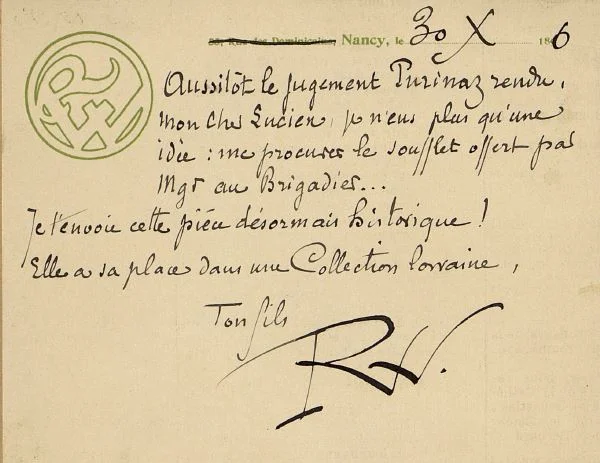 36, Rue des Dominicains, Nancy, le 30 X 1806
Aussitôt le jugement Turinaz rendu,
mon cher Lucien, je n'eus plus qu'une
idée : me procurer le soufflet offert par
Mgr au Brigadier...
Je t'envoie cette pièce désormais historique !
Elle a sa place dans une Collection lorraine,
Ton fils
RW.